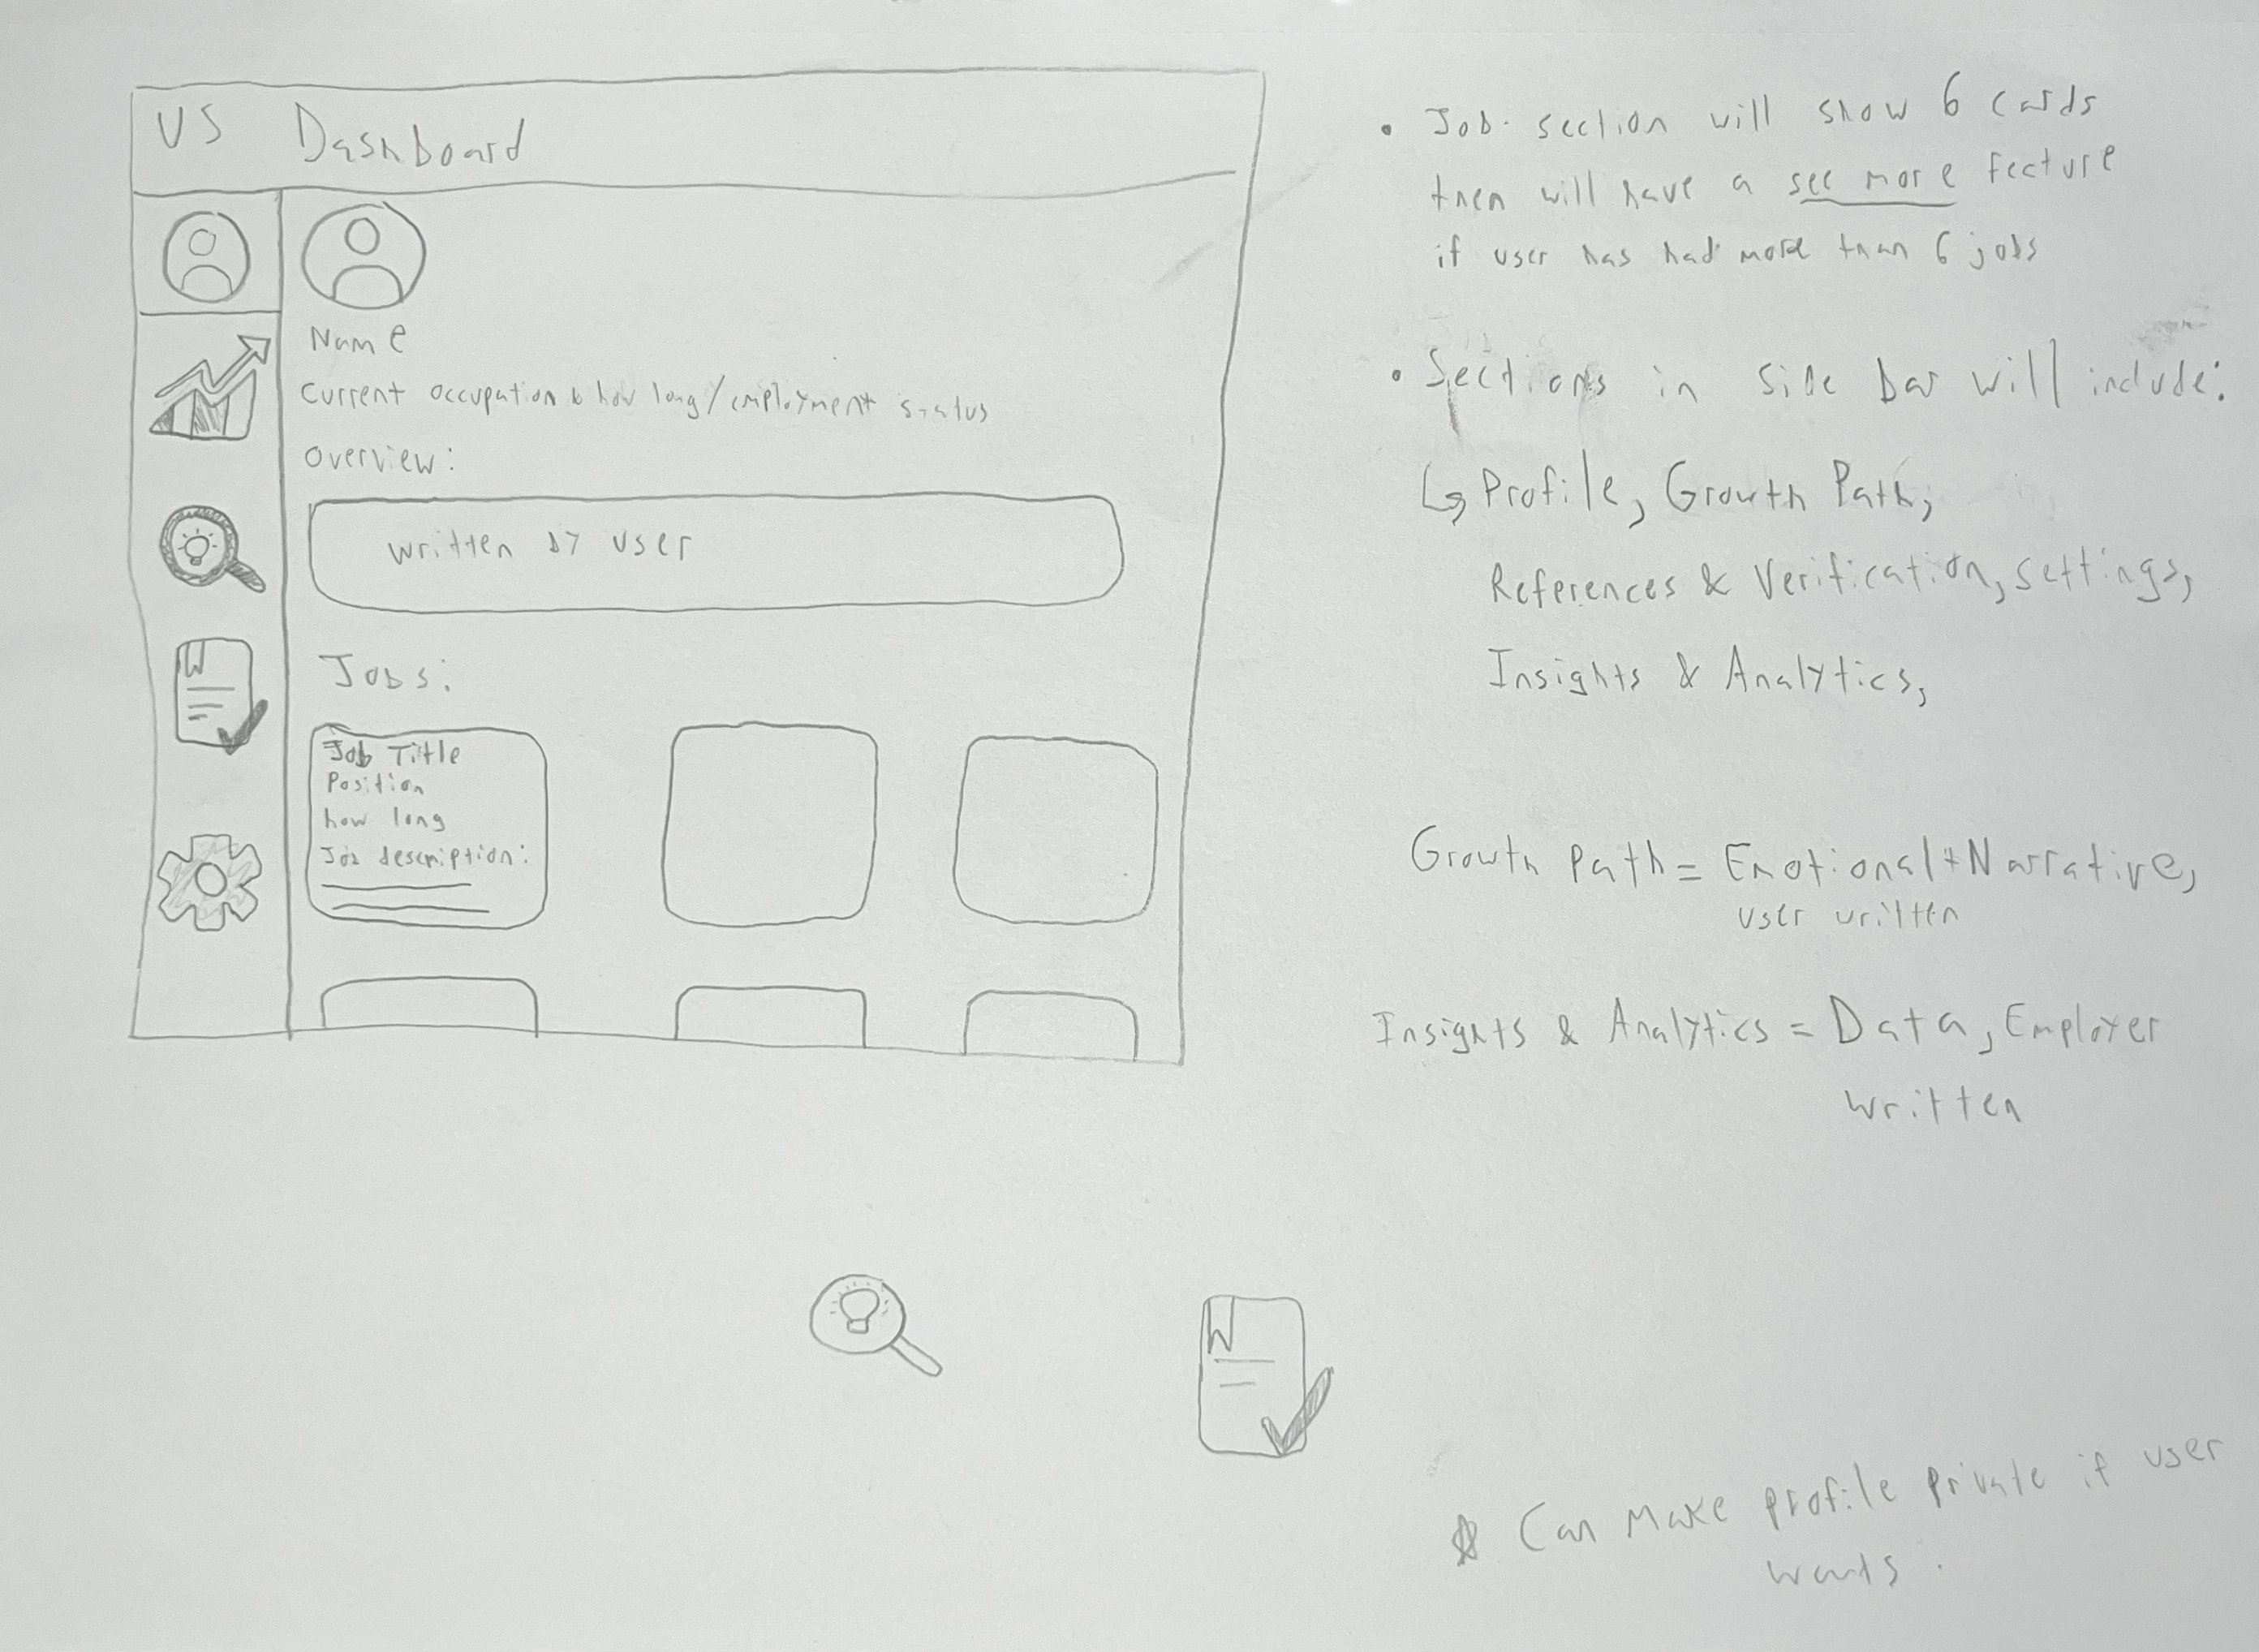 VS Dashboard
Name
Current occupation & how long/employment status
Overview:
written by user
Jobs:
Job Title
Position
how long
Job description:
W
• Job section will show 6 cards
then will have a see more fecture
if user has had more than 6 jobs
• Sections in side bar will include:
↳ Profile, Growth Path,
References & Verification, settings,
Insights & Analytics,
Growth Path = Emotional + Narrative,
user written
Insights & Analytics = Data, Employer
written
W
☆ Can make profile private if user
wants.